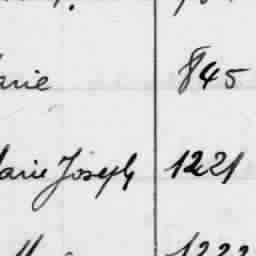 arie 845
arie Joseph 1221
1222